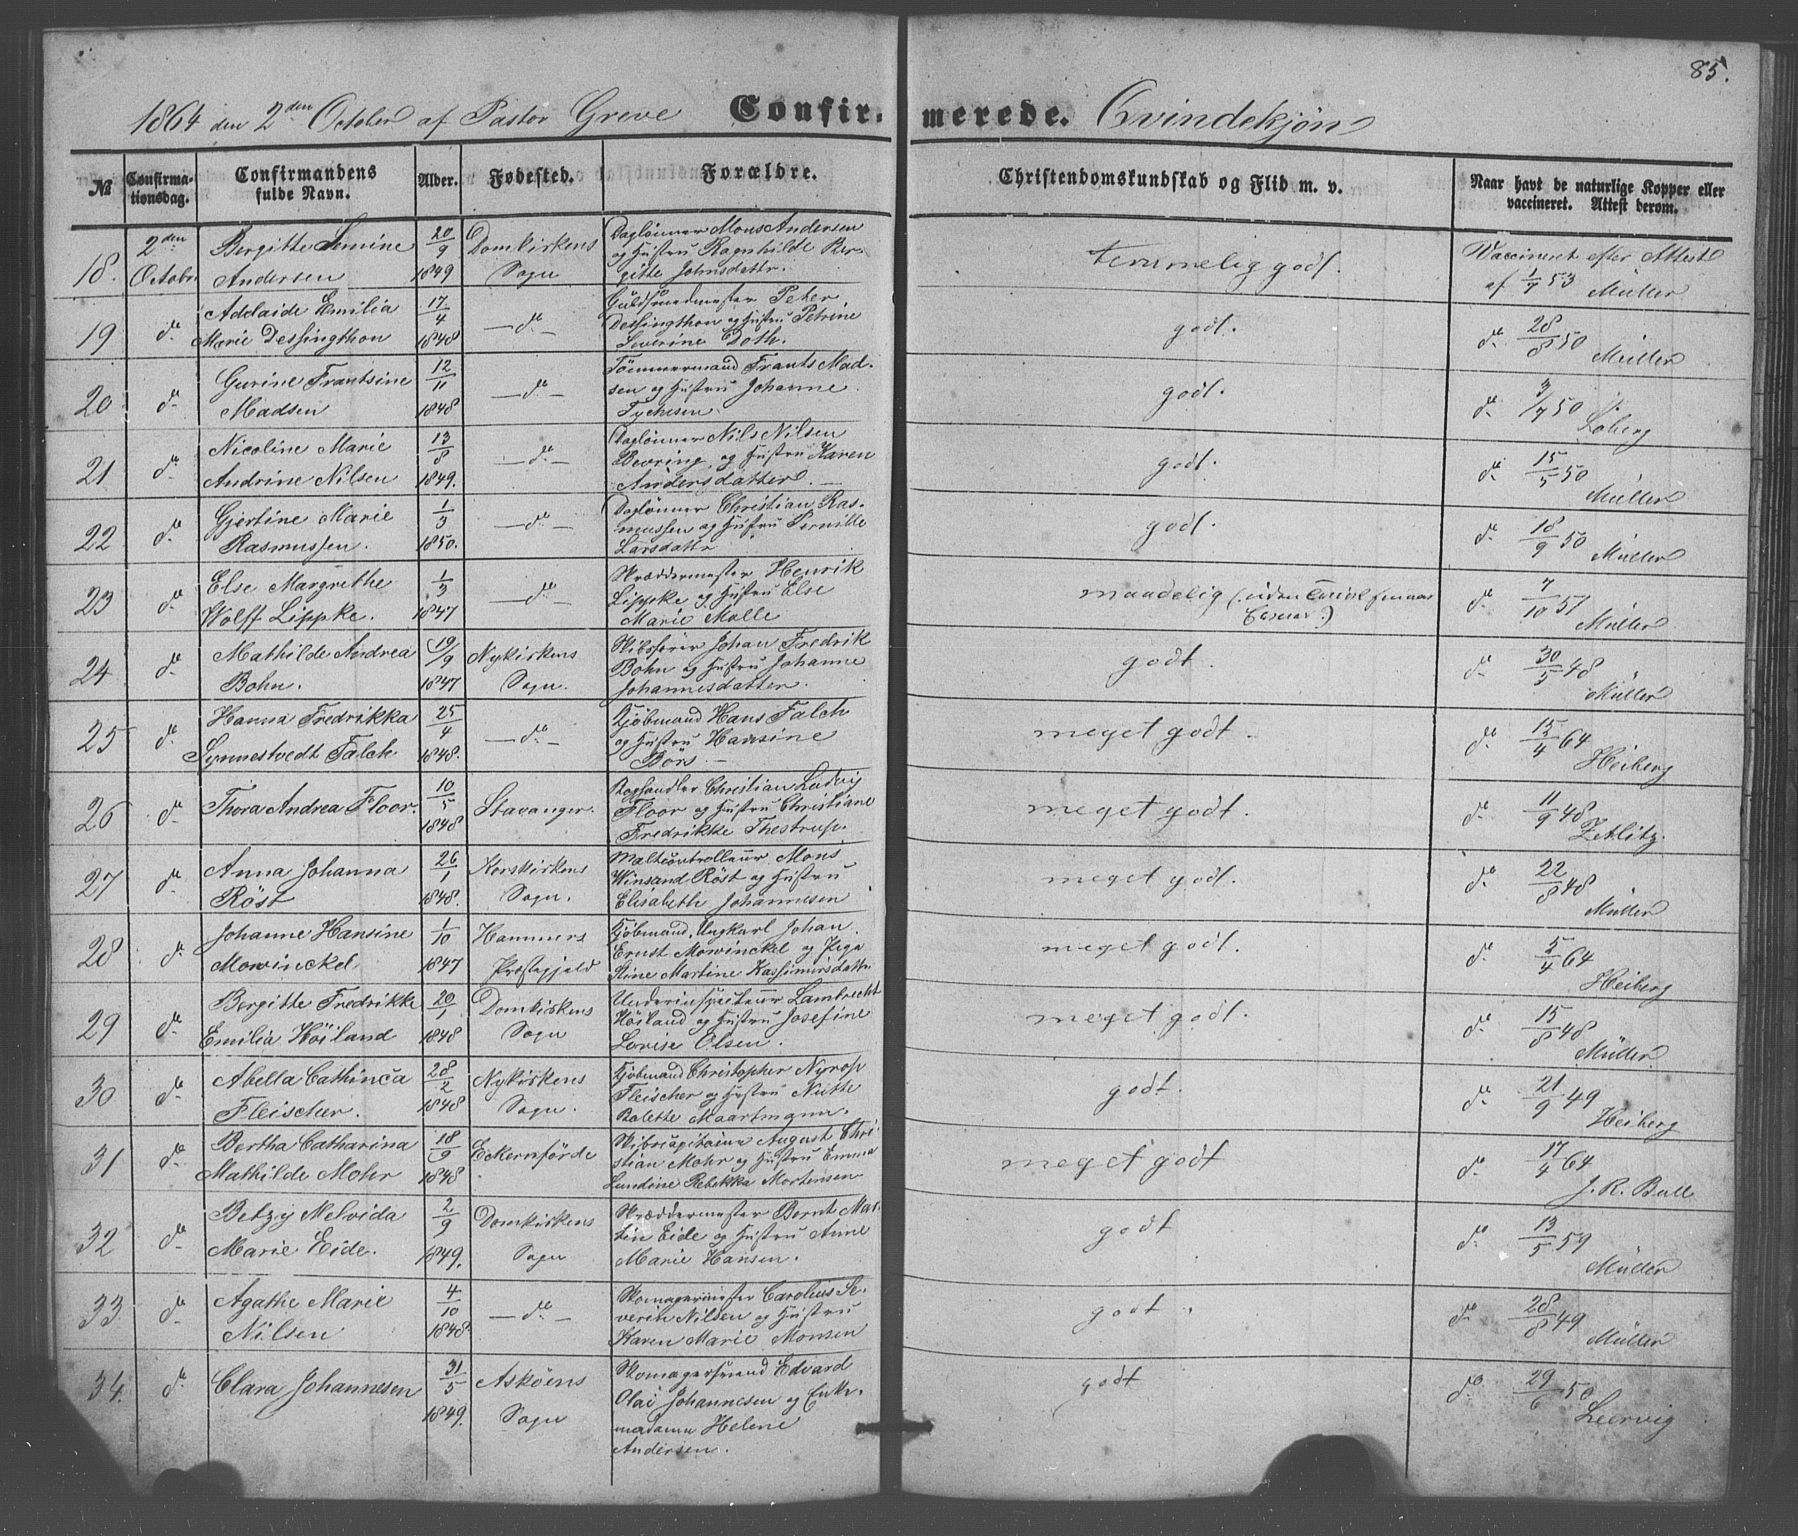 85.
1864 den 2den October af Pastor Greve Confir- merede. Qvindekjøn
No Confirma-tionsdag. Confirmandens fulde Navn. Alder. Fødested. Forældre. Christendomskundskab og Flid m. v. Naar havt de naturlige Kopper eller vaccineret. Attest derom.
18. 2den Octobr Bergitte Semine Andersen 20/9 1849 Domkirkens Sogn Daglønner Mons Andersen og Hustru Ragnhilde Bergitte Johnsdattr. temmelig godt. Vaccineret efter Attest af 1/7 53 Müller
19 do Adelaide Emilia Marie Dessingthon 17/4 1848 do Guldsmedmester Peter Dessingthon og Hustru Petrine Severine Doth. godt. do 28/8 50 Müller
20 do Gurine Frantsine Madsen 12/11 1848 do Tømmermand Frants Madsen og Hustru Johanne Tychesen. godt. do 3/7 50 Loberg
21 do Nicoline Marie Andrine Nilsen 13/8 1849. do Daglønner Nils Nilsen Bevring, og Hustru Karen Andersdatter. godt. do 15/5 50 Müller
22 do Gjertine Marie Rasmussen. 1/3 1850. do Daglønner Christian Rasmussen og Hustru Pernille Larsdattr godt. do 18/9 50 Müller
23 do Else Margrethe Wolff Lippke. 1/3 1847 do Skræddermester Henrik Lippke og Hustru Else Marie Malle maadelig do 7/10 51 Müller
24 do Mathilde Andrea Bohn. 19/9 1847 Nykirkens Sogn. Skibsfører Johan Fredrik Bohn og Hustru Johanne Johannesdatter. godt. do 30/5 48 Müller
25 do Hanna Fredrikka Synnestvedt Falch 25/4 1848. do Kjøbmand Hans Falch og Hustru Hansine Börs. meget godt. do 15/4 64 Heiberg
26 do Thora Andrea Floor. 10/5 1848 Stavanger. Boghandler Christian Ludvig Floor og Hustru Christiane Fredrikke Thestrup. meget godt. do 11/9 48 Zetlitz.
27 do Anna Johanna Röst 26/1 1848. Korskirkens Sogn. Maltcontrolleur Mons Winsand Röst og Hustru Elisabeth Johannesen meget godt. do 22/8 48 Müller
28 do Johanne Hansine Mowinckel 1/10 1847 Hammers Præstegjeld Kjøbmand, Ungkarl Johan Ernst Mowinckel og Pige Stine Martine Kassimirsdattr meget godt. do 5/4 64 Heiberg
29 do Bergitte Fredrikke Emilia Höiland 20/1 1848 Domkirkens Sogn Underinspecteur Lambrecht Höiland og Hustru Josefine Lovise Olsen. meget godt. do 15/8 48 Müller
30 do Abella Cathinca Fleischer. 28/2 1848 Nykirkens Sogn. Kjøbmand Christopher Nyrop Fleischer og Hustru Nutte Bolette Maartmann. godt. do 21/9 49 Heiberg
31 do Bertha Catharina Mathilde Mohr 18/9 1848 Eckernförde Skibscapitaine August Christian Mohr og Hustru Emma Lundine Rebekka Mortensen meget godt do 17/4 64 J. R. Bull
32 do Betzy Nelvida Marie Eide. 2/9 1849. Domkirkens Sogn Skræddermester Bernt Martin Eide og Hustru Anne Marie Hansen. godt do 13/5 59 Müller
33 do Agathe Marie Nilsen 4/10 1848. do Skomagermester Carolius Severin Nilsen og Hustru Karen Marie Monsen godt. do 28/8 49 Müller
34. do Clara Johannesen 31/5 1849. Askøens Sogn Skomagersvend Edvard Olai Johannesen og Enkemadame Helene Andersen. godt do 29/6 50 Leervig